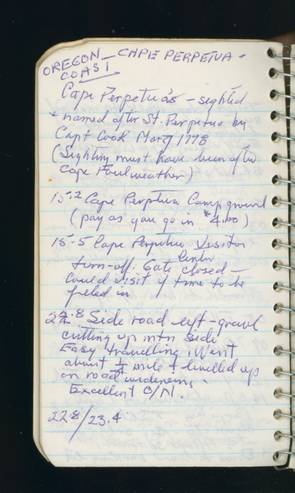 OREGON COAST — CAPE PERPETUA -
Cape Perpetua's - sighted
+ named after St. Perpetua by
Capt Cook Mar 7 1778
(Sighting must have been after
Cape Foulweather)
15.2 Cape Perpetua Campground
(pay as you go in $4.00)
15.5 Cape Perpetua Visitor
Center
turn-off. Gate closed -
Could visit if time to be
fitted in
Side road left - gravel
cutting up mtn side
Easy travelling. Went
about ½ mile + levelled up
on road widening.
Excellent O/N.
22.8/23.4